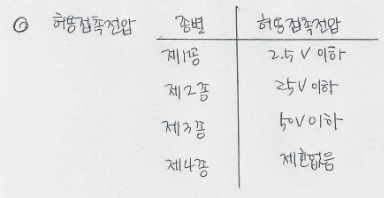 ◎ 허용접촉전압 종별 허용접촉전압
제1종 2.5 V 이하
제2종 25V 이하
제3종 50V 이하
제4종 제한없음